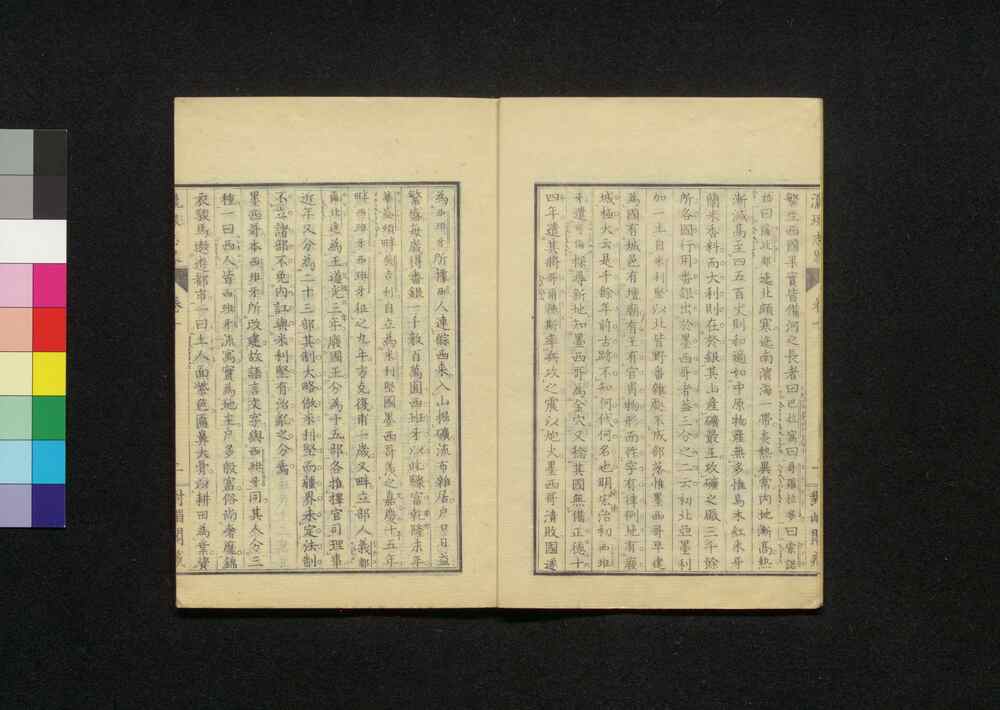 繁生西國果實皆備河之長者曰巴拉窩曰哥羅拉多曰索諾
迤北頗寒迤南濱海一帶炎熱異常內地漸高熱
漸減高至四五百丈則和適如中原物產無多惟烏木紅木牙
蘭米香料而大利則在於銀其山產礦最王攻礦之厰三千餘
所各國行用番銀出於墨西哥者蓋三分之二云初北亞墨利
加一土自米利堅以北皆野番雜處不成部落惟墨西哥早建
為國有城邑有壇廟有王有官肖物形而作字有律例地有廢
城極大云是千餘年前古跡不知何代何名也明宏治初西班
牙遣可倫探尋新地知墨西哥為金穴又稔其國無備正德十
四年遣其將哥爾德斯率兵攻之震以炮火墨西哥潰敗國遂
為西班牙所據西人連艅西來入山採礦流布雜居戶口日益
繁盛每歲得番銀一千數百萬圓西班牙以此驟富乾隆末年
華盛頓畔英吉利自立為米利堅國墨西哥羡之嘉慶十五年
畔西班牙西班牙征之九年方克復甫一歲又畔立部人義都
爾比迪為王道光三年廢國王分為十五部各推擇官司理事
近年又分為二十三部其制大略倣米利堅而疆界未定法制
不立諸部不免內訌與米利堅有治亂之分焉
墨西哥本西班牙所改建故語言文字與西班牙同其人分三
種一曰西人皆西班牙流寓實為地主戶多殷富俗尚奢靡錦
衣駿馬遨遊都市一曰土人面紫色匾鼻大骨力耕田為業資